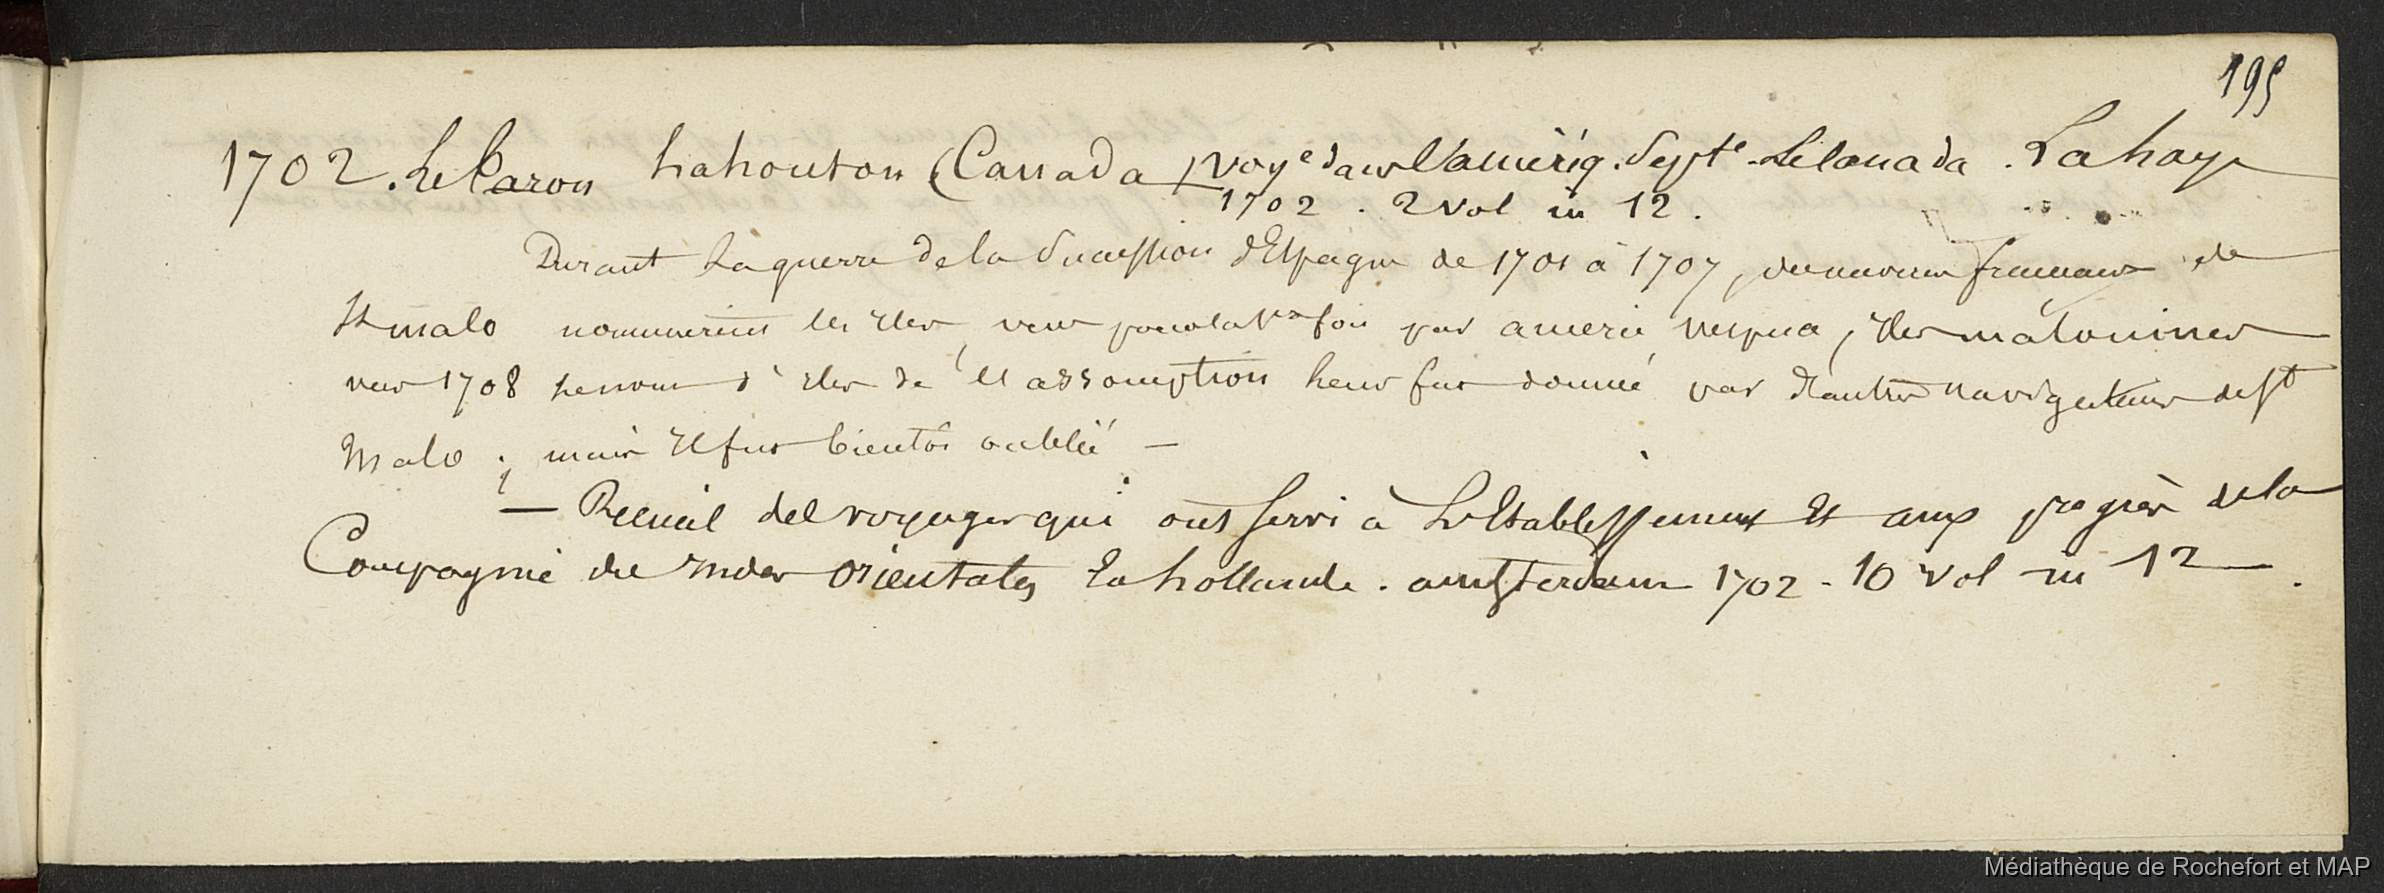 195
1702. Le Baron Lahouton (Canada) voye dans l'amériq. Septe. Le Canada. La haye
1702. 2 vol in 12.
Durant la guerre de la Succession d'Espagne de 1701 à 1707, des navires français de
St malo nommerent les iles, vues pour la 1re fois par americ vespuce, iles malouines
vers 1708 le nom d'iles de l'assomption leur fut donné par d'autres navigateurs de St
Malo ; mais il fut bientôt oublié —
— Recueil des voyages qui ont servi à l'Etablissement Et aux progrès de la
Compagnie des indes orientales En hollande. amsterdam 1702 - 10 vol in 12.
Médiathèque de Rochefort et MAP